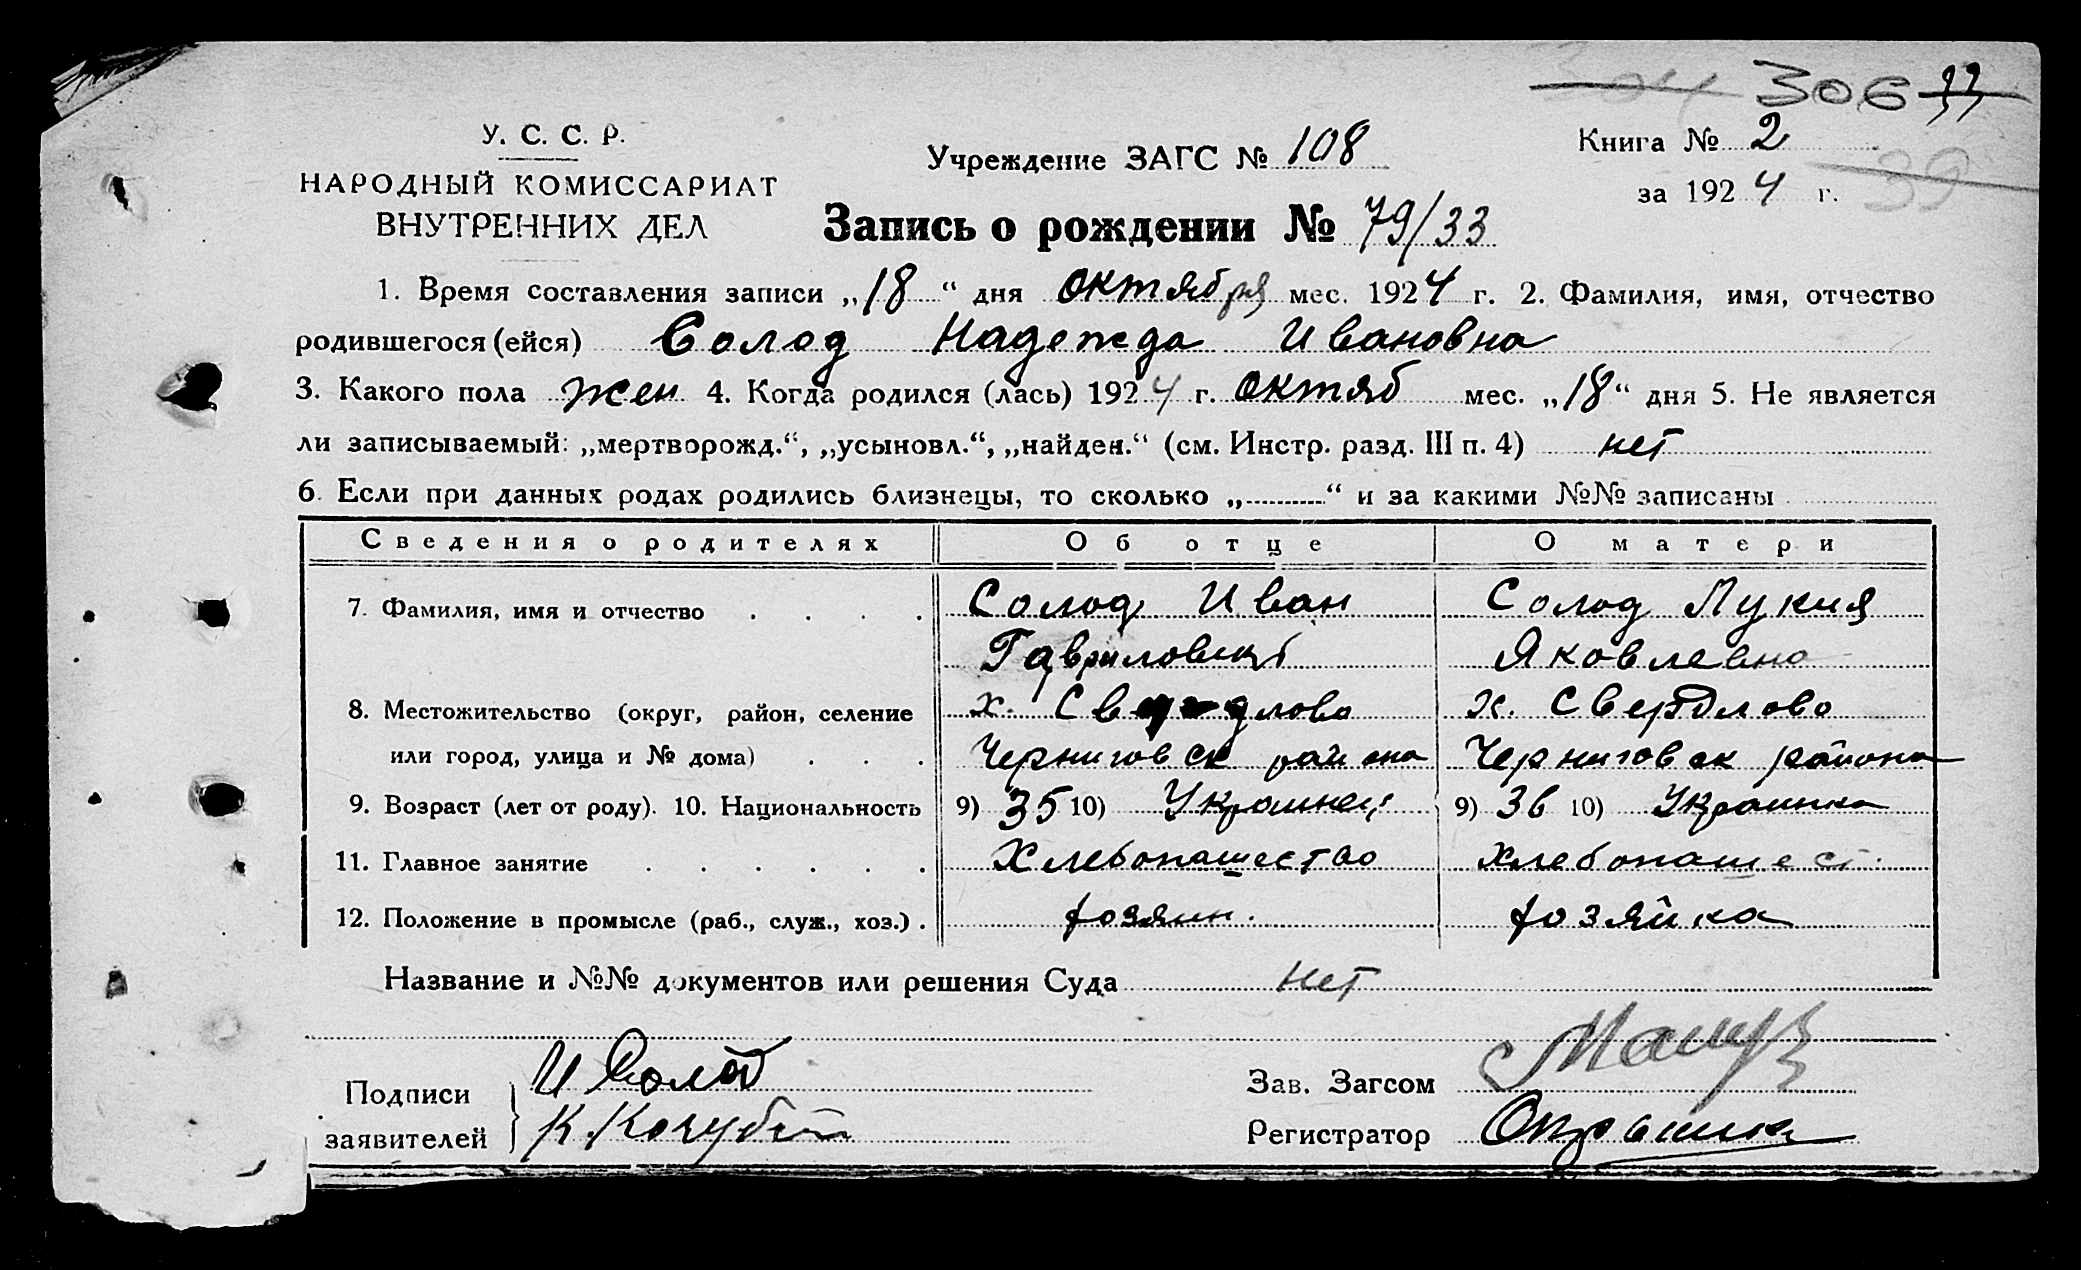 304 306 33
У. С. С. Р.
НАРОДНЫЙ КОМИССАРИАТ
ВНУТРЕННИХ ДЕЛ
Учреждение ЗАГС № 108
Книга № 2
за 1924 г. 39
Запись о рождении № 79/33
1. Время составления записи „18“ дня октября мес. 1924 г. 2. Фамилия, имя, отчество
родившегося (ейся) Солод Надежда Ивановна
3. Какого пола жен 4. Когда родился (лась) 1924 г. октяб мес. „18“ дня 5. Не является
ли записываемый: „мертворожд.“, „усыновл.“, „найден.“ (см. Инстр. разд. III п. 4) нет
6. Если при данных родах родились близнецы, то сколько „ “ и за какими №№ записаны
Сведения о родителях Об отце О матери
7. Фамилия, имя и отчество Солод Иван Солод Лукия
Гаврилович Яковлевна
8. Местожительство (округ, район, селение х. Свердлово х. Свердлово
или город, улица и № дома) Черниговск района Черниговск района
9. Возраст (лет от роду). 10. Национальность 9) 35 10) Украинец 9) 36 10) Украинка
11. Главное занятие Хлебопашество хлебопашест.
12. Положение в промысле (раб., служ., хоз.) хозяин. хозяйка
Название и №№ документов или решения Суда нет
Подписи И Солод Зав. Загсом
заявителей К. Кочубей Регистратор